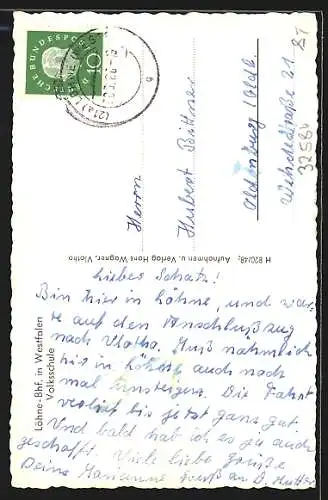 Liebes Schatz!
Bin hier in Löhne, und war-
te auf den Anschlußzug
nach Vlotho. Muß nähmlich
hir in Löhne auch noch
mal Umsteigen. Die Fahrt
verlief bis jetzt ganz gut.
Und bald hab ich es ja auch
geschafft. Viele liebe Grüße
Deine Marianne Gruß an D. Mutter
Herrn
Hubert Büttner
Oldenburg (Oldb.
21
32584
H 820/48; Aufnahmen u. Verlag Hans Wagner, Vlotho
Löhne-Bhf. in Westfalen
Volksschule
DEUTSCHE BUNDESPOST
10
(21a)